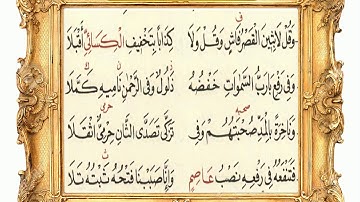 وَقُلْ لَابِثِينَ الْقَصْرُ فَاشٍ وَقُلْ وَلَا كِذَابًا بِتَخْفِيفِ الْكِسَائِيِّ أَقْبَلَا
وَفِي رَفْعِ بَارَبُّ السَّمٰوَاتِ خَفْضُهُ ذَلُولٌ وَفِي الرَّحْمٰنِ نَامِيهِ كَمَّلَا
وَنَاخِرَةً بِالْمَدِّ صُحْبَتُهُمْ وَفِي تَزَكَّى تَصَدَّى الثَّانِ حِرْمِيٌّ اثْقَلَا
فَتَنْفَعُهُ فِي رَفْعِهِ نَصْبُ عَاصِمٍ وَإِنَّا صَبَبْنَا فَتْحُهُ ثَبْتُهُ تَلَا